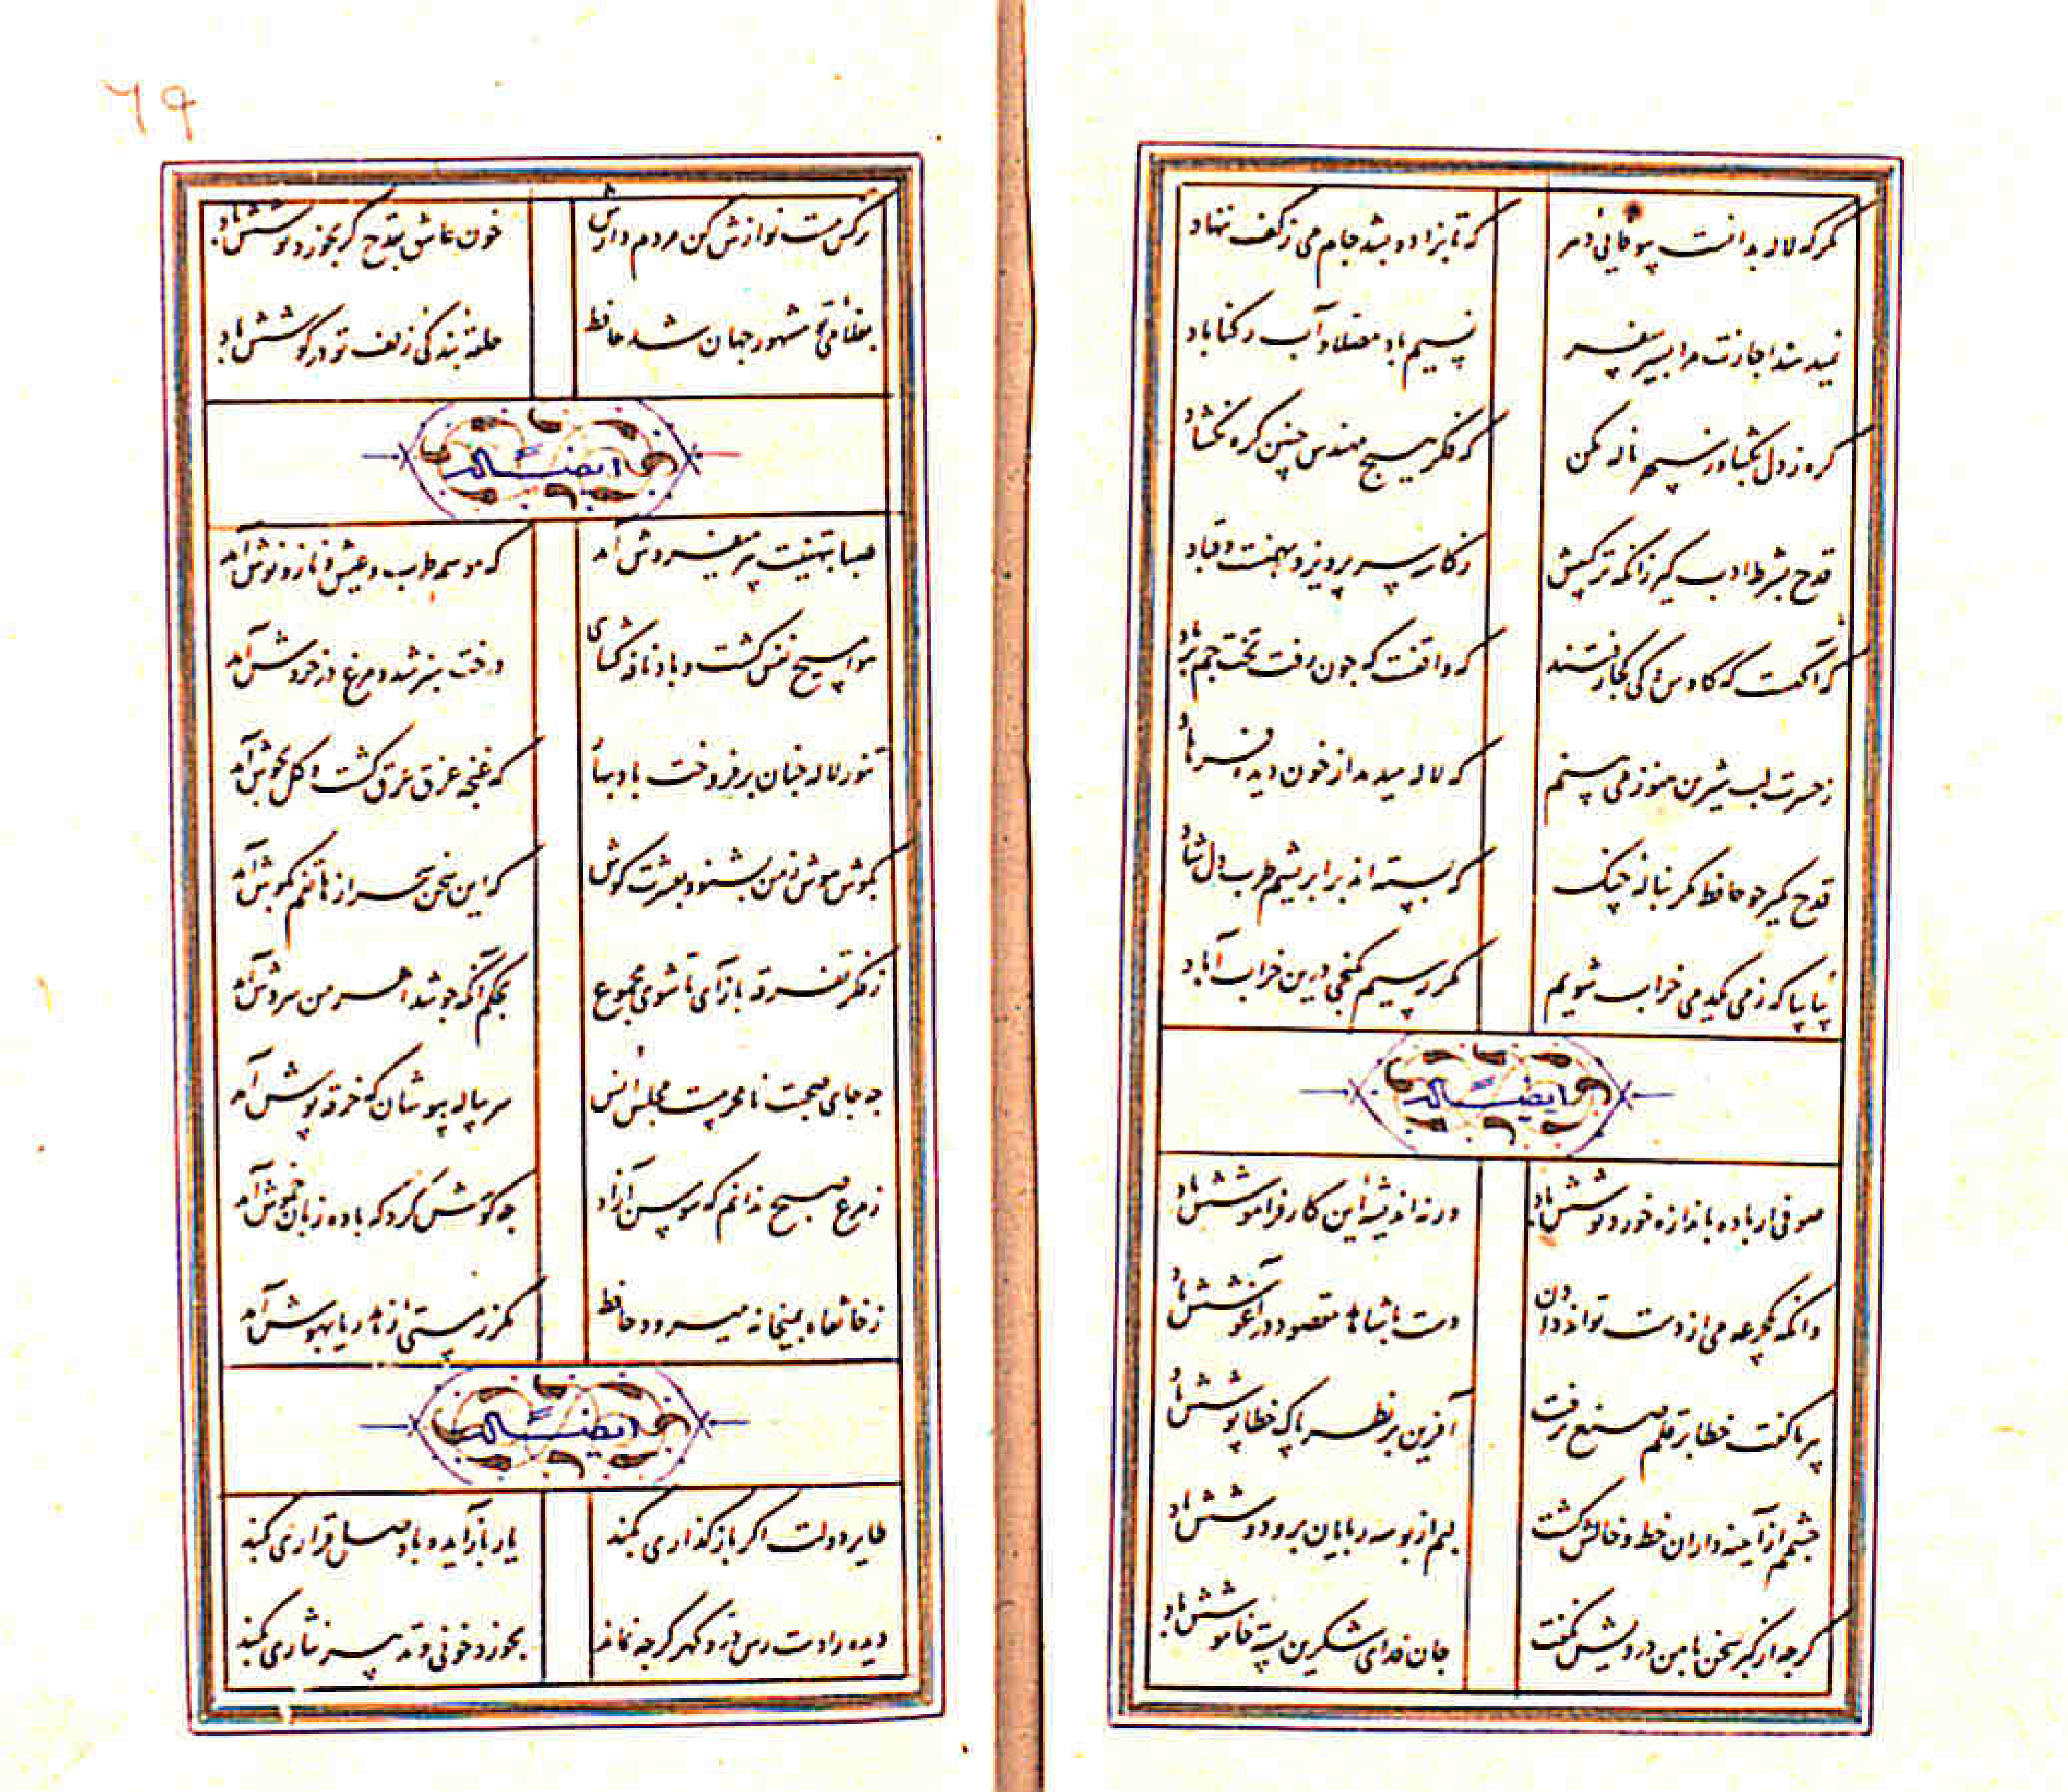 مکر که لاله بدانست بیوفایی دهر
که تا بزاد و بشد جام می ز کف ننهاد
نمیدهند اجازت مرا بسیر سفر
نسیم باد مصلا و آب رکناباد
کره ز دل بکشا وز سپهر یاد مکن
که فکر هیچ مهندس چنین کره نکشاد
قدح بشرط ادب کیر زانکه ترکیبش
ز کاسه سر پرویز و بهمنست و قباد
که آکهست که کاوس و کی کجا رفتند
که واقفست که چون رفت تخت جم بر باد
ز حسرت لب شیرین هنوز می بینم
که لاله میدمد از خون دیده فرهاد
قدح مکیر چو حافظ مکر بناله چنک
که بسته اند بر ابریشم طرب دل شاد
بیا بیا که زمی یکدمی خراب شویم
مکر رسیم کنجی درین خراب آباد
ایضا له
صوفی ار باده باندازه خورد نوشش باد
ورنه اندیشه این کار فراموشش باد
وانکه یکجرعه می از دست تواند دادن
دست با شاهد مقصود در آغوشش باد
پیر ما کفت خطا بر قلم صنع نرفت
آفرین بر نظر پاک خطا پوشش باد
چشمم از آینه داران خط و خالش کشت
لبم از بوسه ربایان بر و دوشش باد
کرچه از کبر سخن با من درویش نکفت
جان فدای شکرین پسته خاموشش باد
٦٩
نرکس مست نوازش کن مردم دارش
خون عاشق بقدح کر بخورد نوشش باد
بغلامی تو مشهور جهان شد حافظ
حلقه بندکی زلف تو در کوشش باد
ایضا له
صبا بتهنیت پیر میفروش آمد
که موسم طرب و عیش و ناز و نوش آمد
هوا مسیح نفس کشت و باد نافه کشای
درخت سبز شد و مرغ در خروش آمد
تنور لاله چنان برفروخت باد بهار
که غنچه غرق عرق کشت و کل بجوش آمد
بکوش هوش ز من بشنو و بعشرت کوش
که این سخن سحر از هاتفم بکوش آمد
ز فکر تفرقه باز آی تا شوی مجموع
بحکم آنکه چو شد اهرمن سروش آمد
چه جای صحبت نامحرمیست مجلس انس
سر پیاله بپوشان که خرقه پوش آمد
ز مرغ صبح ندانم که سوسن آزاد
چه کوش کرد که با ده زبان خموش آمد
ز خانقاه بمیخانه میرود حافظ
مکر ز مستی زهد ریا بهوش آمد
ایضا له
طایر دولت اکر باز کذاری بکند
یار باز آید و با وصل قراری بکند
دیده را دست رس در و کهر کرچه نماند
بخورد خونی و تدبیر نثاری بکند